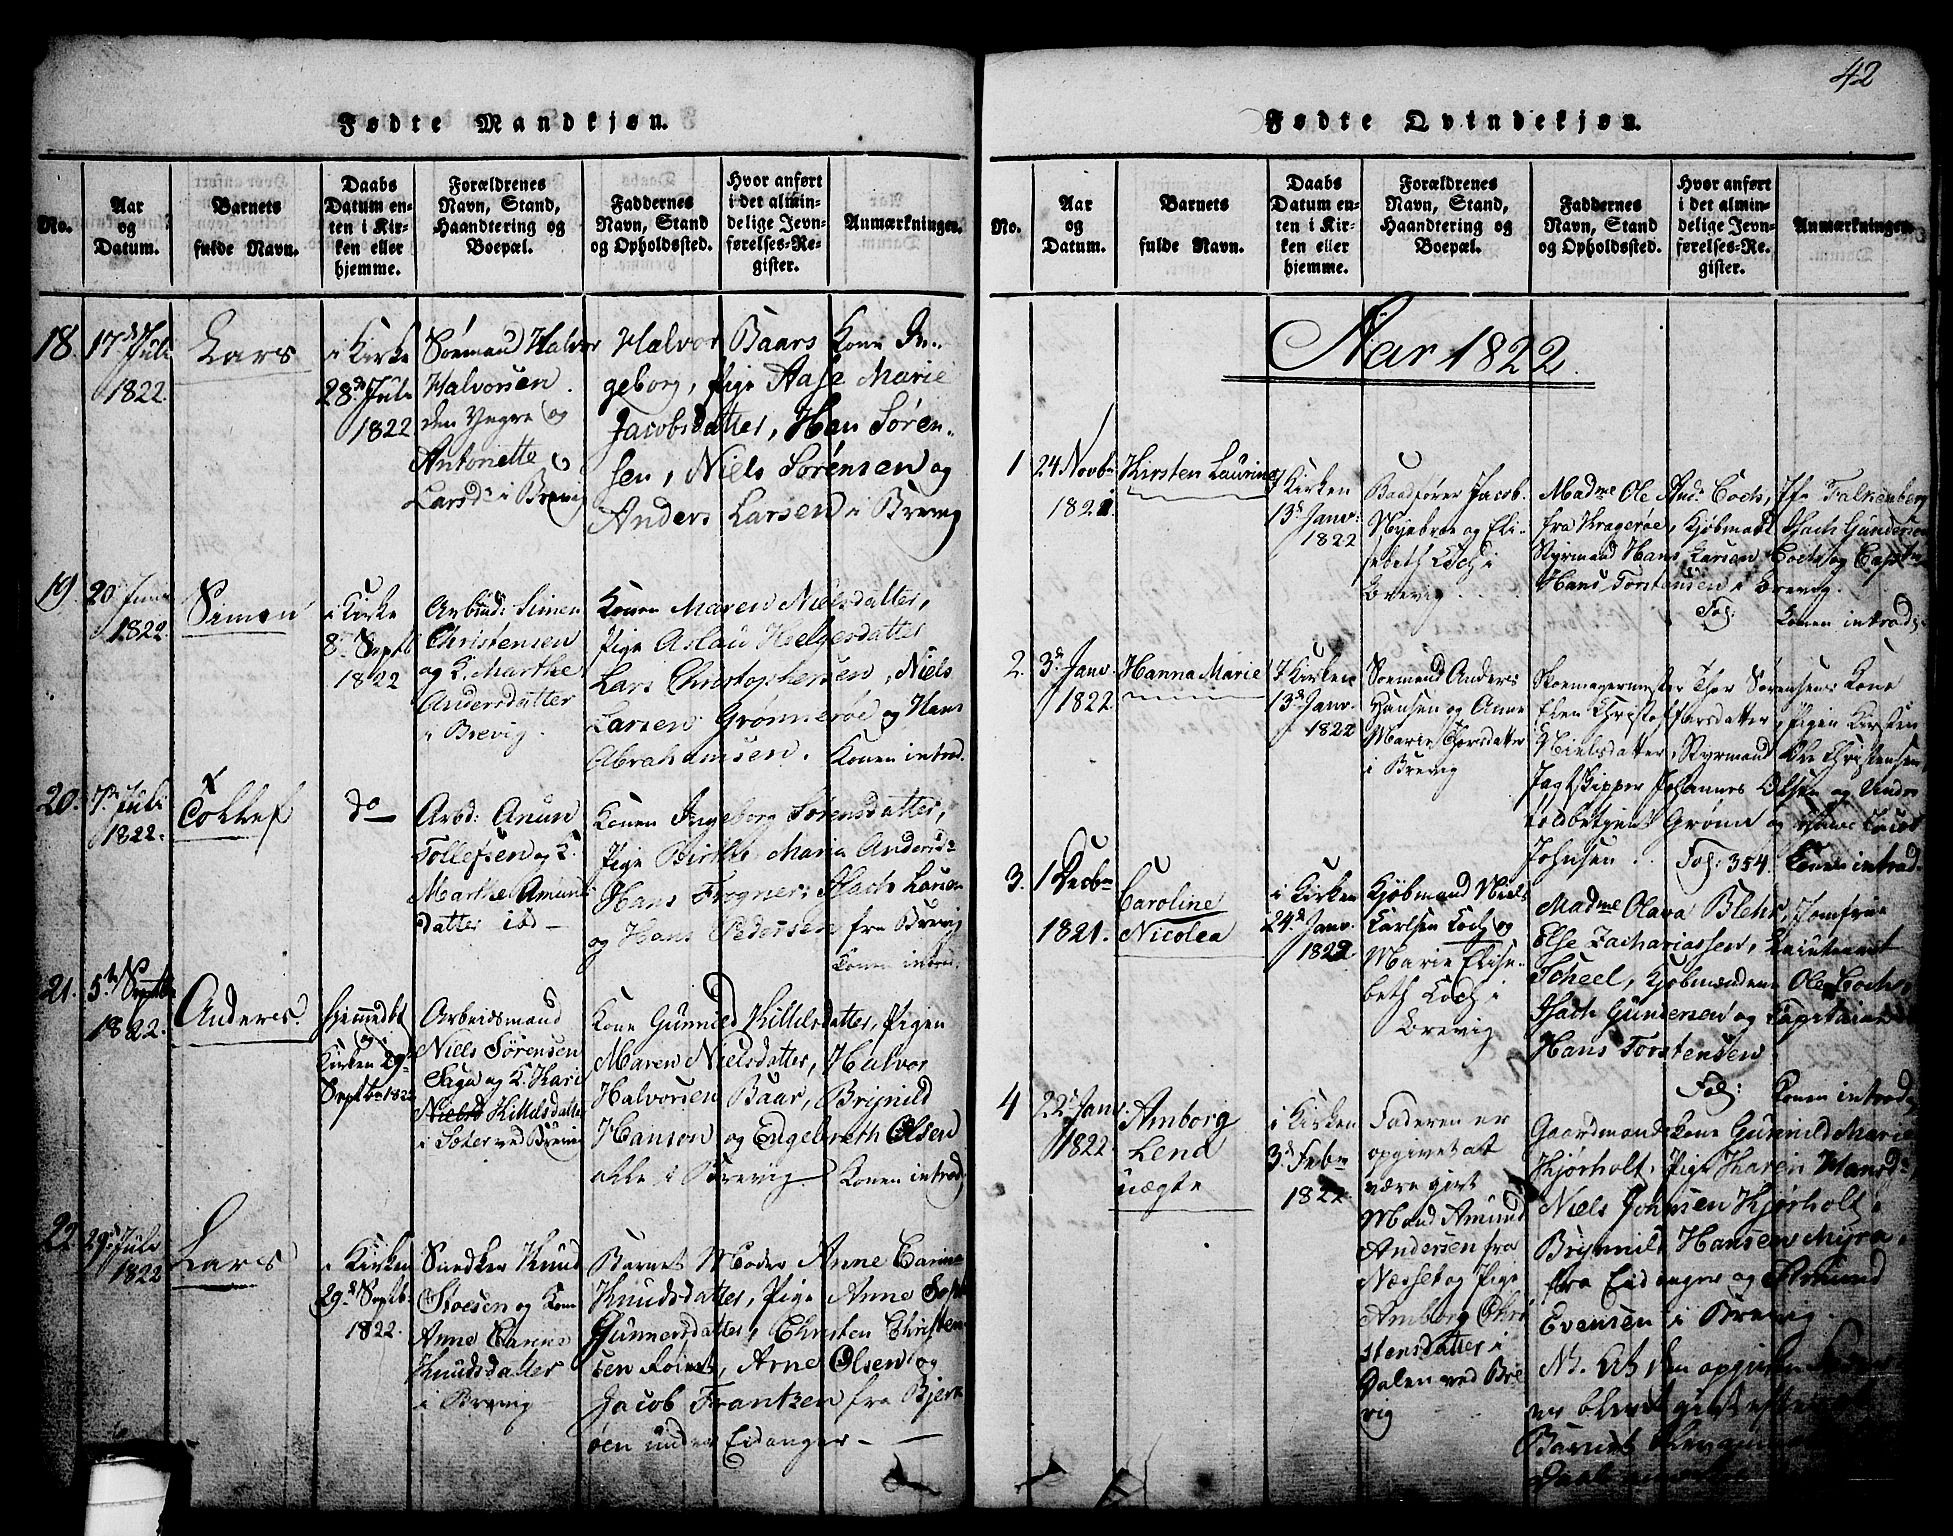 42
Fødte Mandkjøn.
No.
Aar
og
Datum.
Barnets
fulde Navn.
Daabs
Datum en-
ten i Kir-
ken eller
hjemme.
Forældrenes
Navn, Stand,
Haandtering og
Boepæl.
Faddernes
Navn, Stand
og Opholdssted.
Hvor anført
i det almin-
delige Jevn-
førelses-Re-
gister.
Anmærkninger.
18.
17de Juli
1822.
Lars
i Kirke
28de Juli
1822
Søemand Halvor
Halvorsen
den Yngre og
Antonette
Larsdr i Brevig
Halvor Baars Kone In-
geborg, Pige Aase Marie
Jacobsdatter, Han Søren-
sen, Niels Sørensen og
Anders Larsen i Brevig
19.
20 Junii
1822.
Simon
i Kirke
8de Septb
1822
Arbmd: Simen
Christensen
og K. Marthe
Andersdatter
i Brevig.
Konen Maren Nielsdatter,
Pige Aslau Helgersdatter
Lars Christophersen, Niels
Larsen Grønnerøe og Hans
Abrahamsen. Konen introd.
20.
7de Juli
1822.
Tollef
do
Arbd: Anun
Tollefsen og K.
Marthe Amund
datter ibd
Konen Ingeborg Sørensdatter,
Pige Birthe Maria Andersdr
Hans Frogner, Isach Larsen
og Hans Pedersen fra Brevig
Konen introd.
21.
5te Septbr
1822.
Anders
hjemmedbt
og
Kirken 29de
Septbr 1822
Arbeidsmand
Niels Sørensen
Saga og K. Kari
Kittelsdatter
i Sæter ved Brevig
Kone Gunnild Kittilsdatter, Pigen
Maren Nielsdatter, Halvor
Halvorsen Baar, Brynild
Hanson og Engelbreth Olsen
alle i Brevig Konen introd
22
29de Juli
1822
Lars
i Kirken
29de Septb.
1822.
Snedker Knud
Stoesen og Kone
Anne Carine
Knudsdatter
i Brevig
Barnets Moder Anne Carine
Knudsdatter, Pige Anne Soph
Gunnersdatter, Christen Christen-
sen, Arne Olsen og
Jacob Frantzen fra Bjerk
øen under Eidanger
Fødte Qvindekjøn.
No.
Aar
og
Datum.
Barnets
fulde Navn.
Daabs
Datum en-
ten i Kir-
ken eller
hjemme.
Forældrenes
Navn, Stand,
Haandtering og
Boepæl.
Faddernes
Navn, Stand
og Opholdssted.
Hvor anført
i det almin-
delige Jevn-
førelses-Re-
gister.
Anmærkninger.
Aar 1822.
1
24 Novbr
1821.
Kirsten Laurine
i Kirken
13de Janv.
1822
Baadfører Jacob
Nyebroe og Eli-
sebeth Koch i
Brevig
Madme Ole Ands Coch, Jfr Falkenberg
fra Kragerøe, Kjøbmd Isach Gundersen
Styrmand Hans Larsen Coch og Captn
Hans Torstensen i Brevig.
Fol: Konen introd.
2.
3de Janv.
1822
Hanna Marie
i Kirken
13de Janv.
1822
Søemand Anders
Hansen og Anne
Marie Thorsdatter
i Brevig
Skoemagermester Thor Sørensens Kone
Ellen Christofarsdatter, Pigen Kirsten
Nielsdatter, Styrmand Ole Christensen,
Jagtskipper Johannes Olsen og Under
toldbetjent Grøme og
Johnsen. Fol: 354. Konen introd
3.
1 Decbr
1821.
Caroline
Nicolea
i Kirken
24de Janv.
1822
Kjøbmand Niels
Carlsen Koch og
Marie Elise-
beth Koch i
Brevig
Madme Olava Blehr, Jomfrue
Else Zachariassen, Lieutenant
Scheel, Kjøbmændene Ole Coch,
Isach Gundersen og Capitain
Hans Torstensen
Fol: Konen introd
4
22de Janv.
1822
Amborg
Lena
uægte
i Kirken
3de Febr
1822
Faderen er
opgivet at
være gift
Mand Amund
Andersen fra
Næsset og Pige
Amborg Chri
stensdatter i
Dalen ved Bre
vig
Gaardmands Kone Gunnild Marie
Kjørholt, Pige Karen Hansdr
Niels Johnsen Kjørholt,
Brynnild Hansen Myra,
fra Eidanger og Amund
Evensen i Brevig.
Nb. At den opgivne Fader
er blevet gift efter at
Barnets